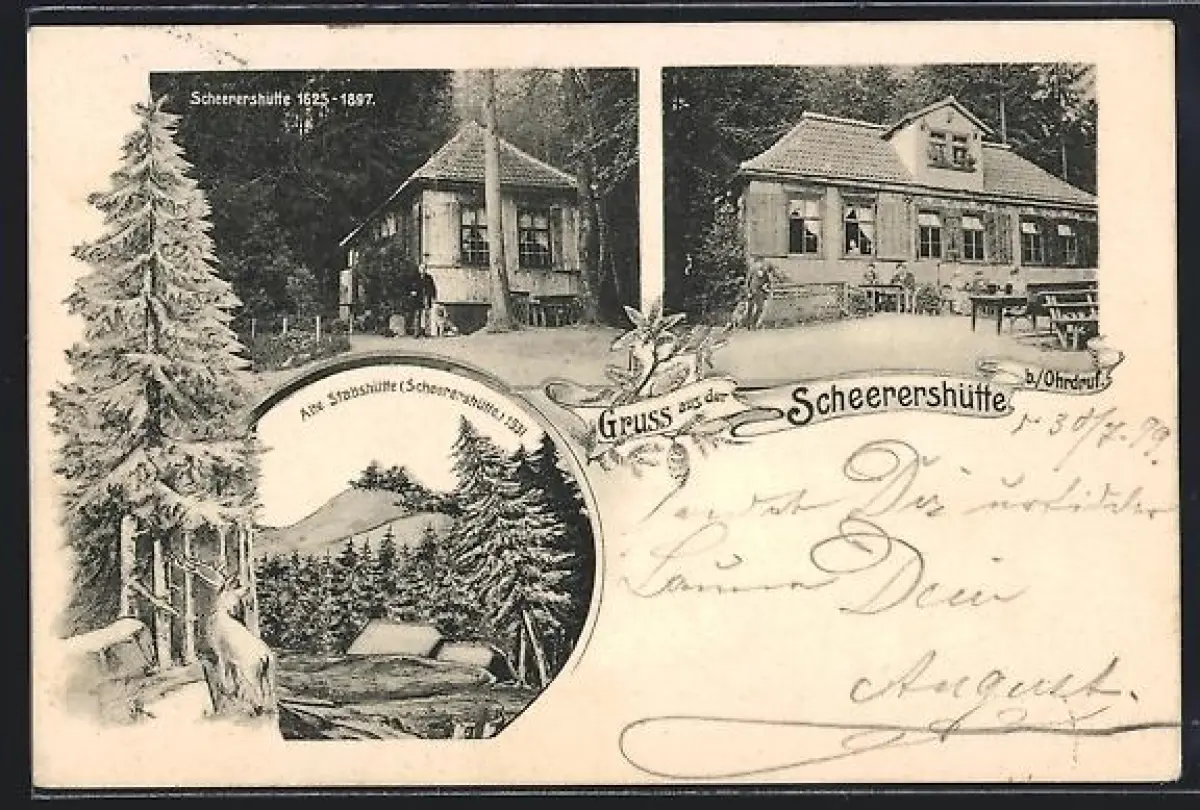 Scheerershütte 1623-1897.
Alte Stabshütte (Scheerershütte)
Gruss aus der Scheerershütte
b./Ohrdruf.
30/7. 99.
sendet Dir
Laura Dein
August.